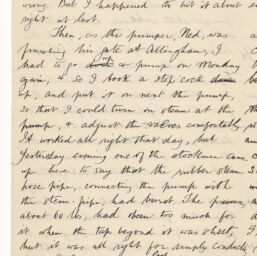 wrong. But I happened to hit it about
right at last.
Then, as the pumper, Ned, was
finishing his gate at Allingham, I
had to go & pump on Monday
again, & so I took a stop cock
up, and put it on next the pump,
so that I could turn on steam at the
pump, & adjust the valves comfortably.
It worked all right that day, but
Yesterday evening one of the stockmen came
up here to say that the rubber steam
hose pipe, connecting the pump with
the steam-pipe, had burst. The pressure,
about 60 lbs, had been too much for
it when the tap beyond it was shut,
but it was all right for simply